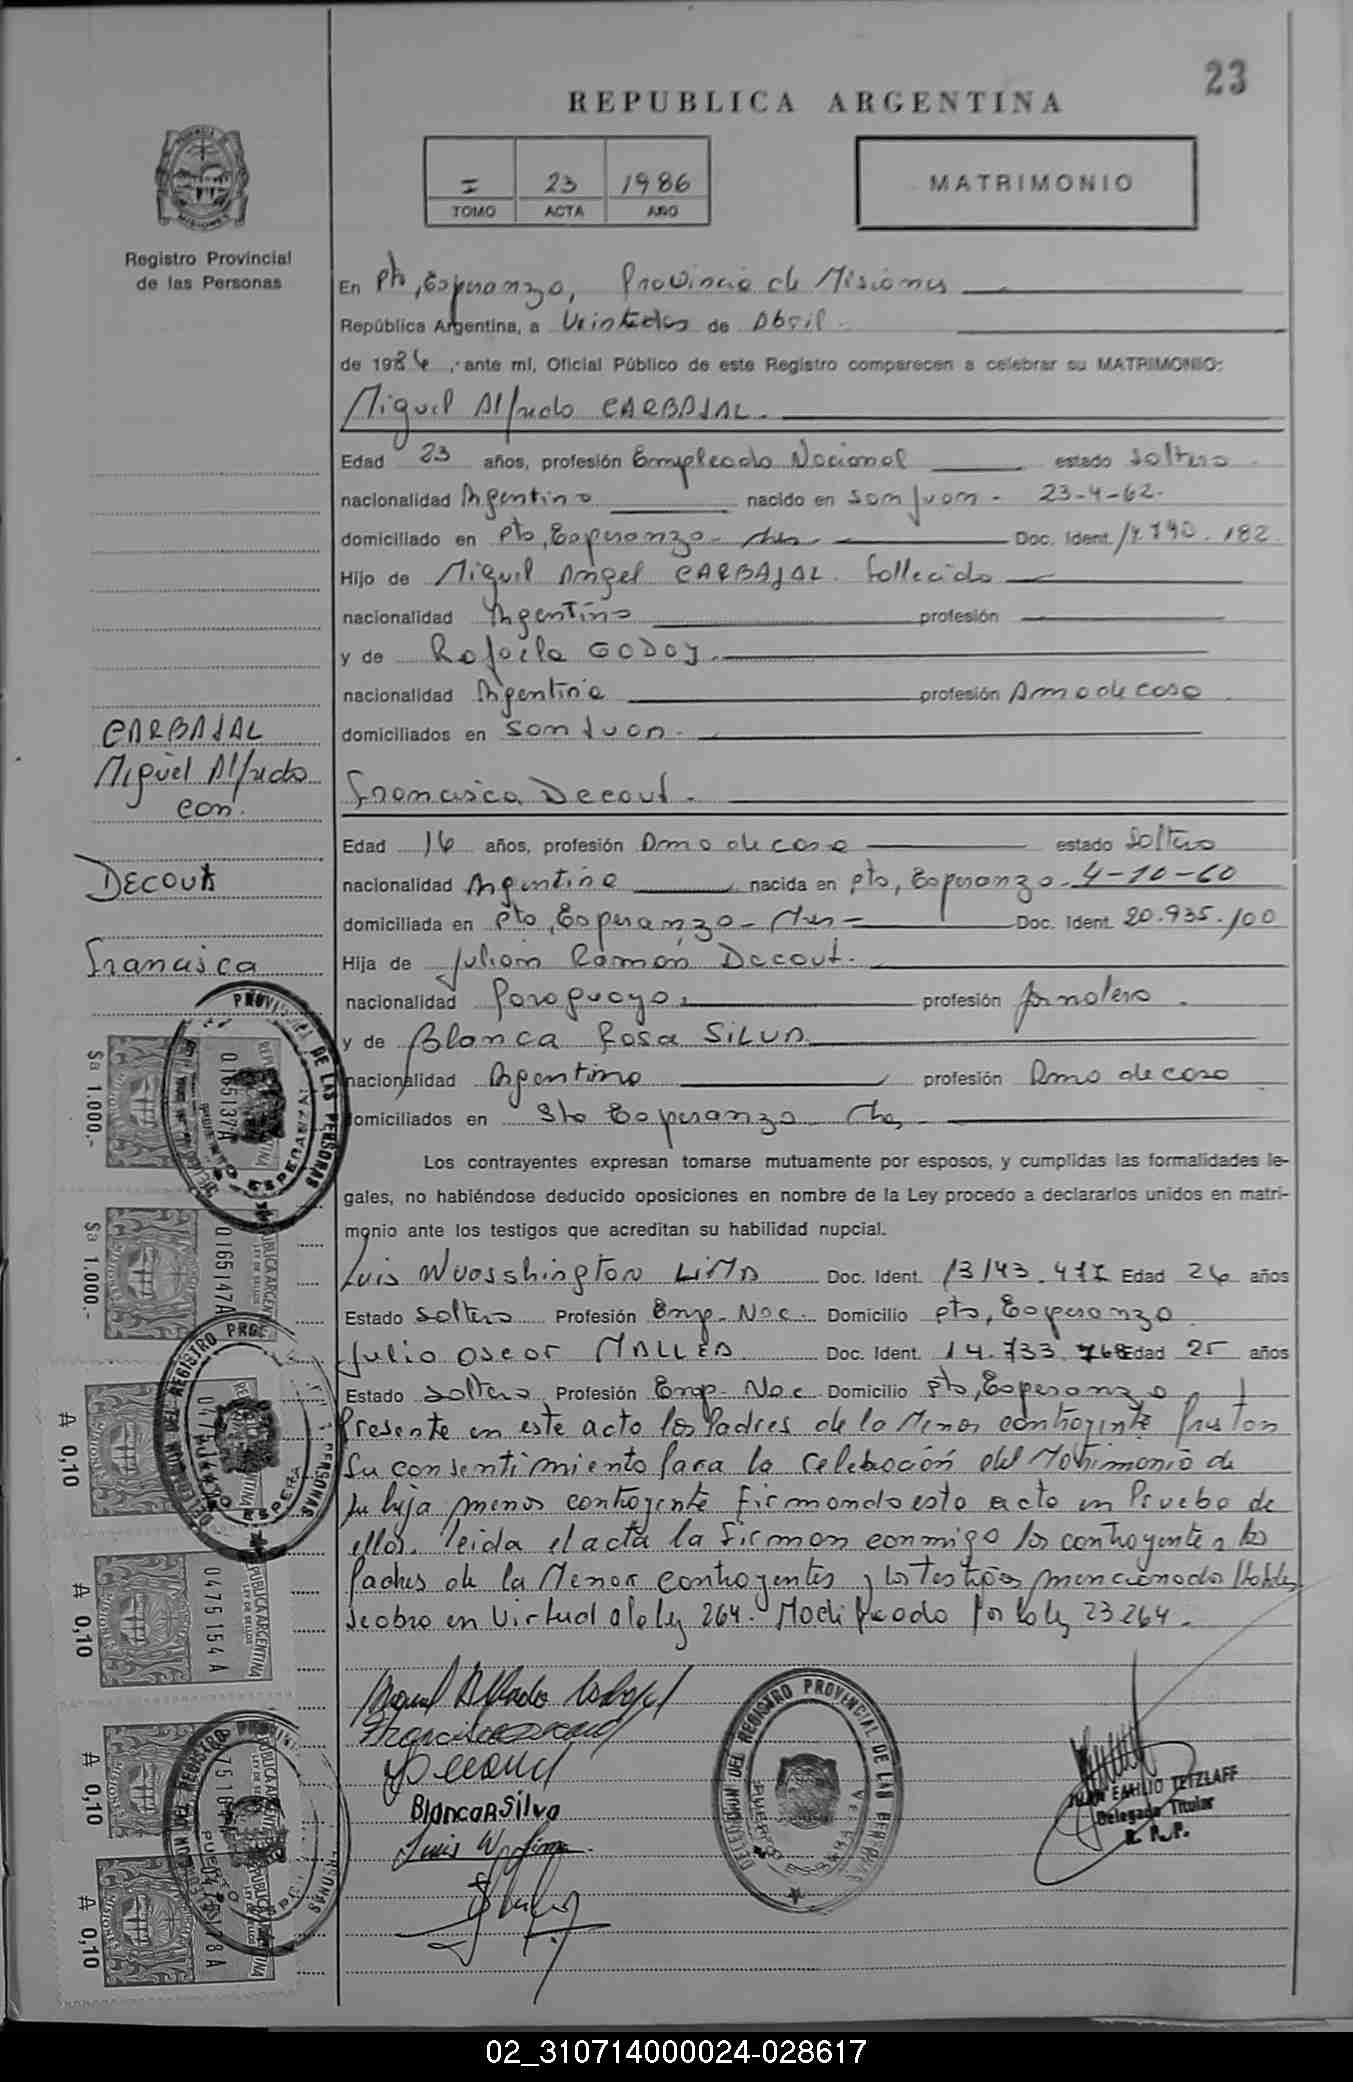 23
REPUBLICA ARGENTINA
I 23 1986
TOMO ACTA AÑO
MATRIMONIO
Registro Provincial
de las Personas
En Pto, Esperanza, Provincia de Misiones
República Argentina, a Veintedos de Abril.
de 1986, ante mí, Oficial Público de este Registro comparecen a celebrar su MATRIMONIO:
Miguel Alfredo CARBAJAL.
Edad 23 años, profesión Empleado Nacional estado soltero
nacionalidad Argentino nacido en San Juan - 23-4-62.
domiciliado en Pto, Esperanza - Mnes Doc. Ident. 14.790.182
Hijo de Miguel Angel CARBAJAL. Fallecido
nacionalidad Argentino profesión
y de Rafaela GODOY.
nacionalidad Argentina profesión Ama de casa
domiciliados en San Juan.
CARBAJAL
Miguel Alfredo
con.
DECOUT
Francisca
Francisca Decout.
Edad 16 años, profesión Ama de casa estado Soltera
nacionalidad Argentina nacida en Pto, Esperanza - 4-10-60
domiciliada en Pto, Esperanza - Mnes - Doc. Ident. 20.935.100
Hija de Julian Ramon Decout.
nacionalidad Paraguaya, profesión Jornalero.
y de Blanca Rosa SILVA
nacionalidad Argentina profesión Ama de casa
domiciliados en Pto Esperanza Mnes
Los contrayentes expresan tomarse mutuamente por esposos, y cumplidas las formalidades le-
gales, no habiéndose deducido oposiciones en nombre de la Ley procedo a declararlos unidos en matri-
monio ante los testigos que acreditan su habilidad nupcial.
Luis Wuasshington LIMA Doc. Ident. 13143.471 Edad 26 años
Estado Soltero Profesión Emp. Nac. Domicilio Pto, Esperanza
Julio Oscar MALLEA Doc. Ident. 14.733.768 Edad 25 años
Estado Soltero Profesión Emp. Nac. Domicilio Pto, Esperanza
Presente en este acto los Padres de la Menor contrayente prestan
su consentimiento para la celebración del Matrimonio de
su hija menor contrayente firmando esta acto en Prueba de
ello. leida el acta la firman conmigo los contrayentes los
Padres de la Menor contrayentes y los Testigos mencionados
se obro en virtud a la ley 264. Modificado por la ley 23.264.
Miguel Alfredo Carbajal
Francisca Decout
Decout
Blanca R Silva
Luis W Lima
JUAN EMILIO TETZLAFF
Delegado Titular
R. P. P.
DELEGACION DEL REGISTRO PROVINCIAL DE LAS PERSONAS
PUERTO ESPERANZA
$a 1.000.-
0165137A
$a 1.000.-
0165147A
REPUBLICA ARGENTINA
LEY DE SELLOS
A 0,10
A 0,10
0475154A
REPUBLICA ARGENTINA
LEY DE SELLOS
A 0,10
A 0,10
02_310714000024-028617